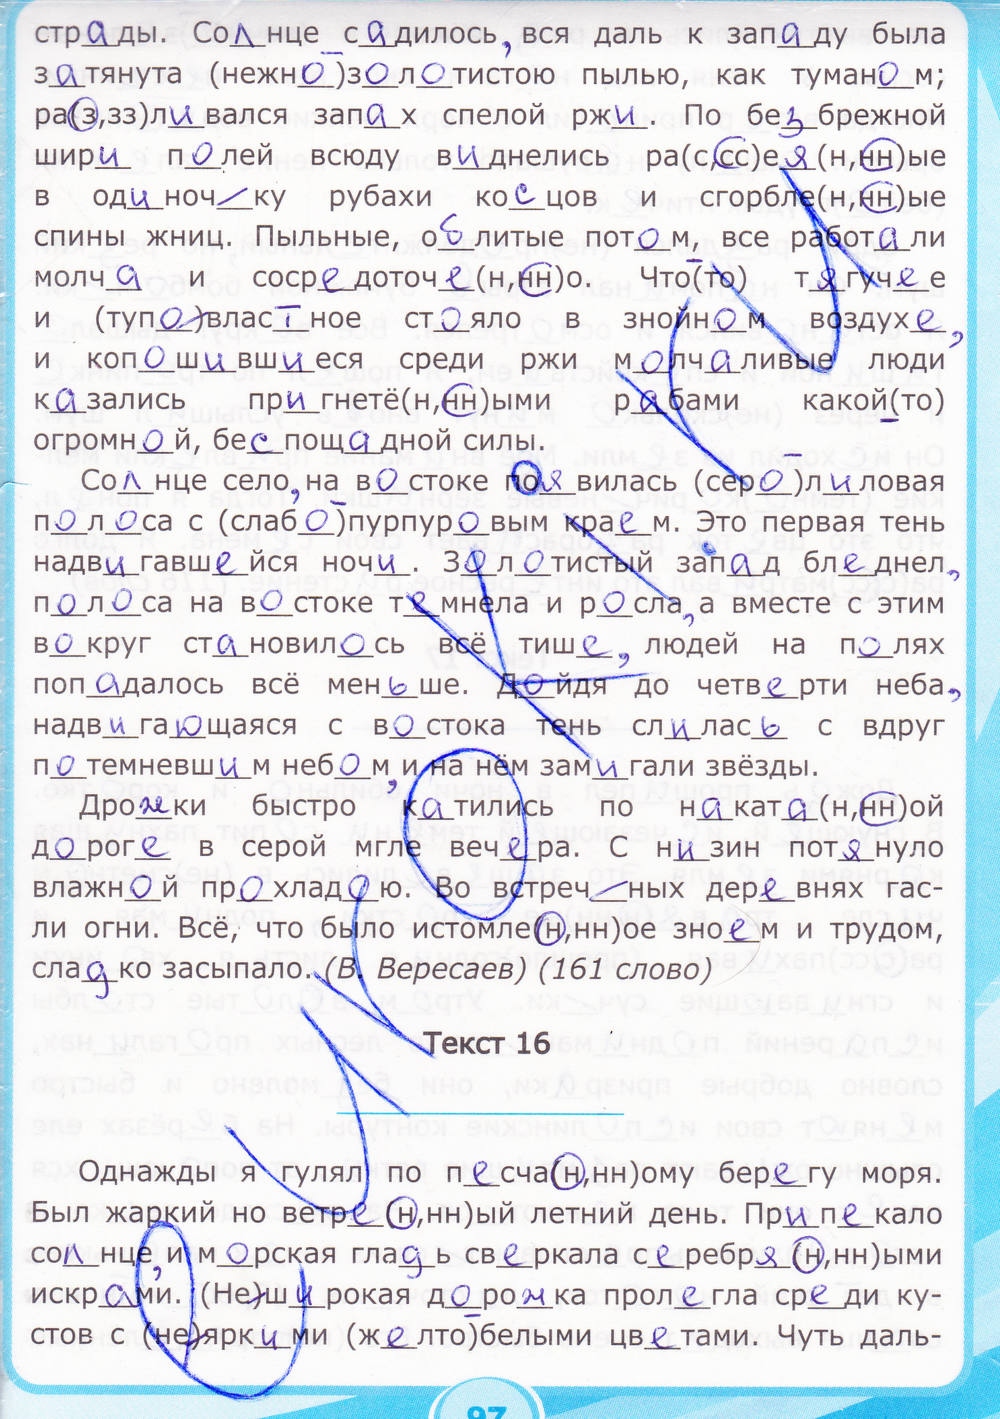 страды. Солнце садилось, вся даль к западу была
затянута (нежно-)золотистою пылью, как туманом;
ра(з,зз)ливался запах спелой ржи. По безбрежной
шири полей всюду виднелись ра(с,сс)ея(н,нн)ые
в одиночку рубахи косцов и сгорбле(н,нн)ые
спины жниц. Пыльные, облитые потом, все работали
молча и сосредоточе(н,нн)о. Что(-то) тягучее
и (тупо)властное стояло в знойном воздухе,
и копошившиеся среди ржи молчаливые люди
казались пригнетё(н,нн)ыми рабами какой(-то)
огромной, беспощадной силы.
Солнце село, на востоке появилась (серо-)лиловая
полоса с (слабо-)пурпуровым краем. Это первая тень
надвигавшейся ночи. Золотистый запад бледнел,
полоса на востоке темнела и росла, а вместе с этим
вокруг становилось всё тише, людей на полях
попадалось всё меньше. Дойдя до четверти неба,
надвигающаяся с востока тень слилась с вдруг
потемневшим небом, и на нём замигали звёзды.
Дрожки быстро катились по накata(н,нн)ой
дороге в серой мгле вечера. С низин потянуло
влажной прохладою. Во встречных деревнях гас-
ли огни. Всё, что было истомле(н,нн)ое зноем и трудом,
сладко засыпало. (В. Вересаев) (161 слово)
Текст 16
Однажды я гулял по песча(н,нн)ому берегу моря.
Был жаркий но ветре(н,нн)ый летний день. Припекало
солнце, и морская гладь сверкала серебря(н,нн)ыми
искрами. (Не)широкая дорожка пролегла среди ку-
стов с (не)яркими (желто-)белыми цветами. Чуть даль-
97